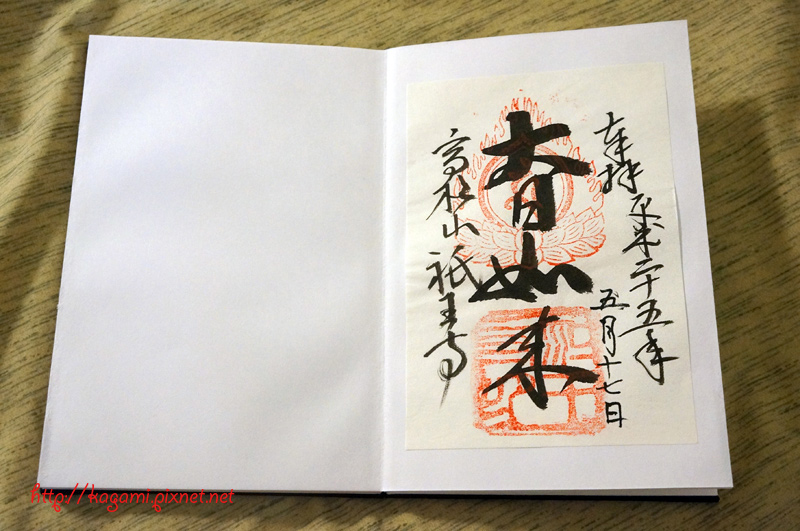 奉拝 平成二十五年
五月十七日
大日如来
高松山 祇王寺
http://kagami.pixnet.net